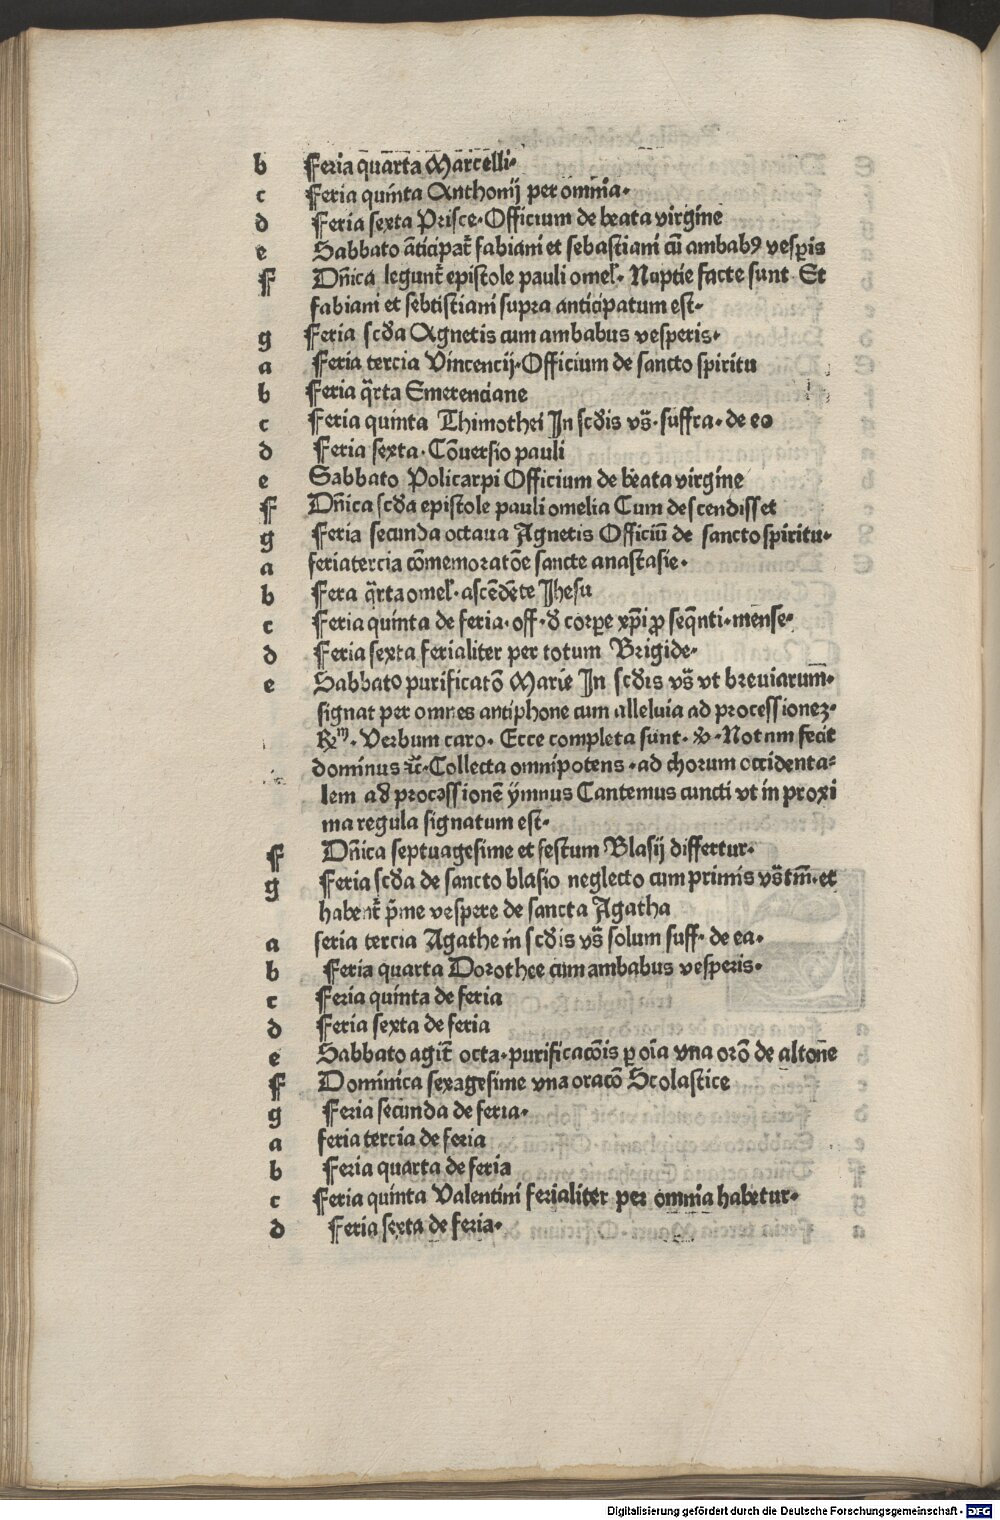 b Feria quarta Marcelli·
c Feria quinta Anthonij per omnia·
d Feria sexta Prisce·Officium de beata virgine
e Sabbato āticipat᷑ fabiani et sebastiani cū ambabꝰ vesꝑis
F Dn̄ica legunt᷑ epistole pauli omel᷑· Nuptie facte sunt Et
fabiani et sebtistiani supra anticipatum est·
g Feria scd̄a Agnetis cum ambabus vesperis·
a Feria tercia Vincencij·Officium de sancto spiritu
b Feria q̄rta Emerenciane
c Feria quinta Thimothei In scd̄is vs̄·suffra·de eo
d Feria sexta·Cōuersio pauli
e Sabbato Policarpi Officium de beata virgine
F Dn̄ica scd̄a epistole pauli omelia Cum descendisset
g Feria secunda octaua Agnetis Officiū de sancto spiritu·
a feria tercia cōmemoratōe sancte anastasie·
b Fera q̄rta omel᷑·ascēdēte Jhesu
c Feria quinta de feria·off·d̄ corꝑe xp̄i ꝓ seq̄nti·mense·
d Feria sexta ferialiter per totum Brigide·
e Sabbato purificatō Marie In scd̄is vs̄ vt breuiarum·
signat per omnes antiphone cum alleluia ad processionez·
℞m·Verbum caro·Ecce completa sunt·℣·Notum fecit
dominus ⁊c̄·Collecta omnipotens·ad chorum occidenta⸗
lem ad processionē ymnus Cantemus cuncti vt in proxi
ma regula signatum est·
F Dn̄ica septuagesime et festum Blasij differtur·
g Feria scd̄a de sancto blasio neglecto cum primis vs̄ tm̄·et
habent᷑ p̄me vespere de sancta Agatha
a feria tercia Agathe in scd̄is vs̄ solum suff·de ea·
b Feria quarta Dorothee cum ambabus vesperis·
c Feria quinta de feria
d Feria sexta de feria
e Sabbato agit᷑ octa·purificacōis ꝑ oīa vna orō de altōne
F Dominica sexagesime vna oracō Scolastice
g Feria secunda de feria·
a feria tercia de feria
b Feria quarta de feria
c Feria quinta Valentini ferialiter per omnia habetur·
d Feria sexta de feria·
Digitalisierung gefördert durch die Deutsche Forschungsgemeinschaft - DFG